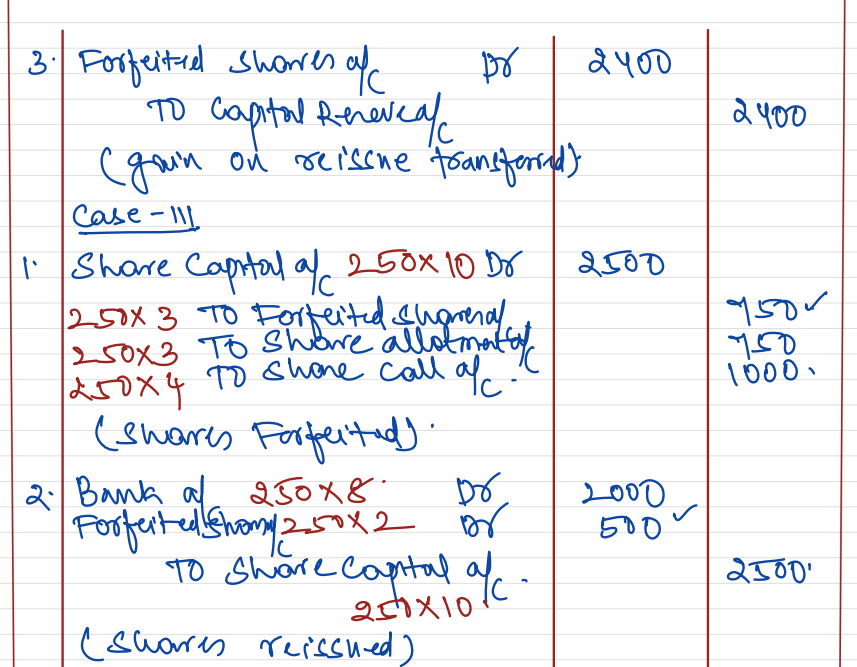 3. Forfeited shares a/c Dr 2400
TO Capital Reserve a/c 2400
(gain on reissue transferred).
Case - III
1. Share Capital a/c 250×10 Dr 2500
250×3 TO Forfeited shares a/c 750✓
250×3 TO Share allotment a/c 750
250×4 TO share call a/c. 1000.
(Shares Forfeited).
2. Bank a/c 250×8 Dr 2000
Forfeited Shares a/c 250×2 Dr 500✓
TO Share Capital a/c. 2500.
250×10
(Shares reissued)